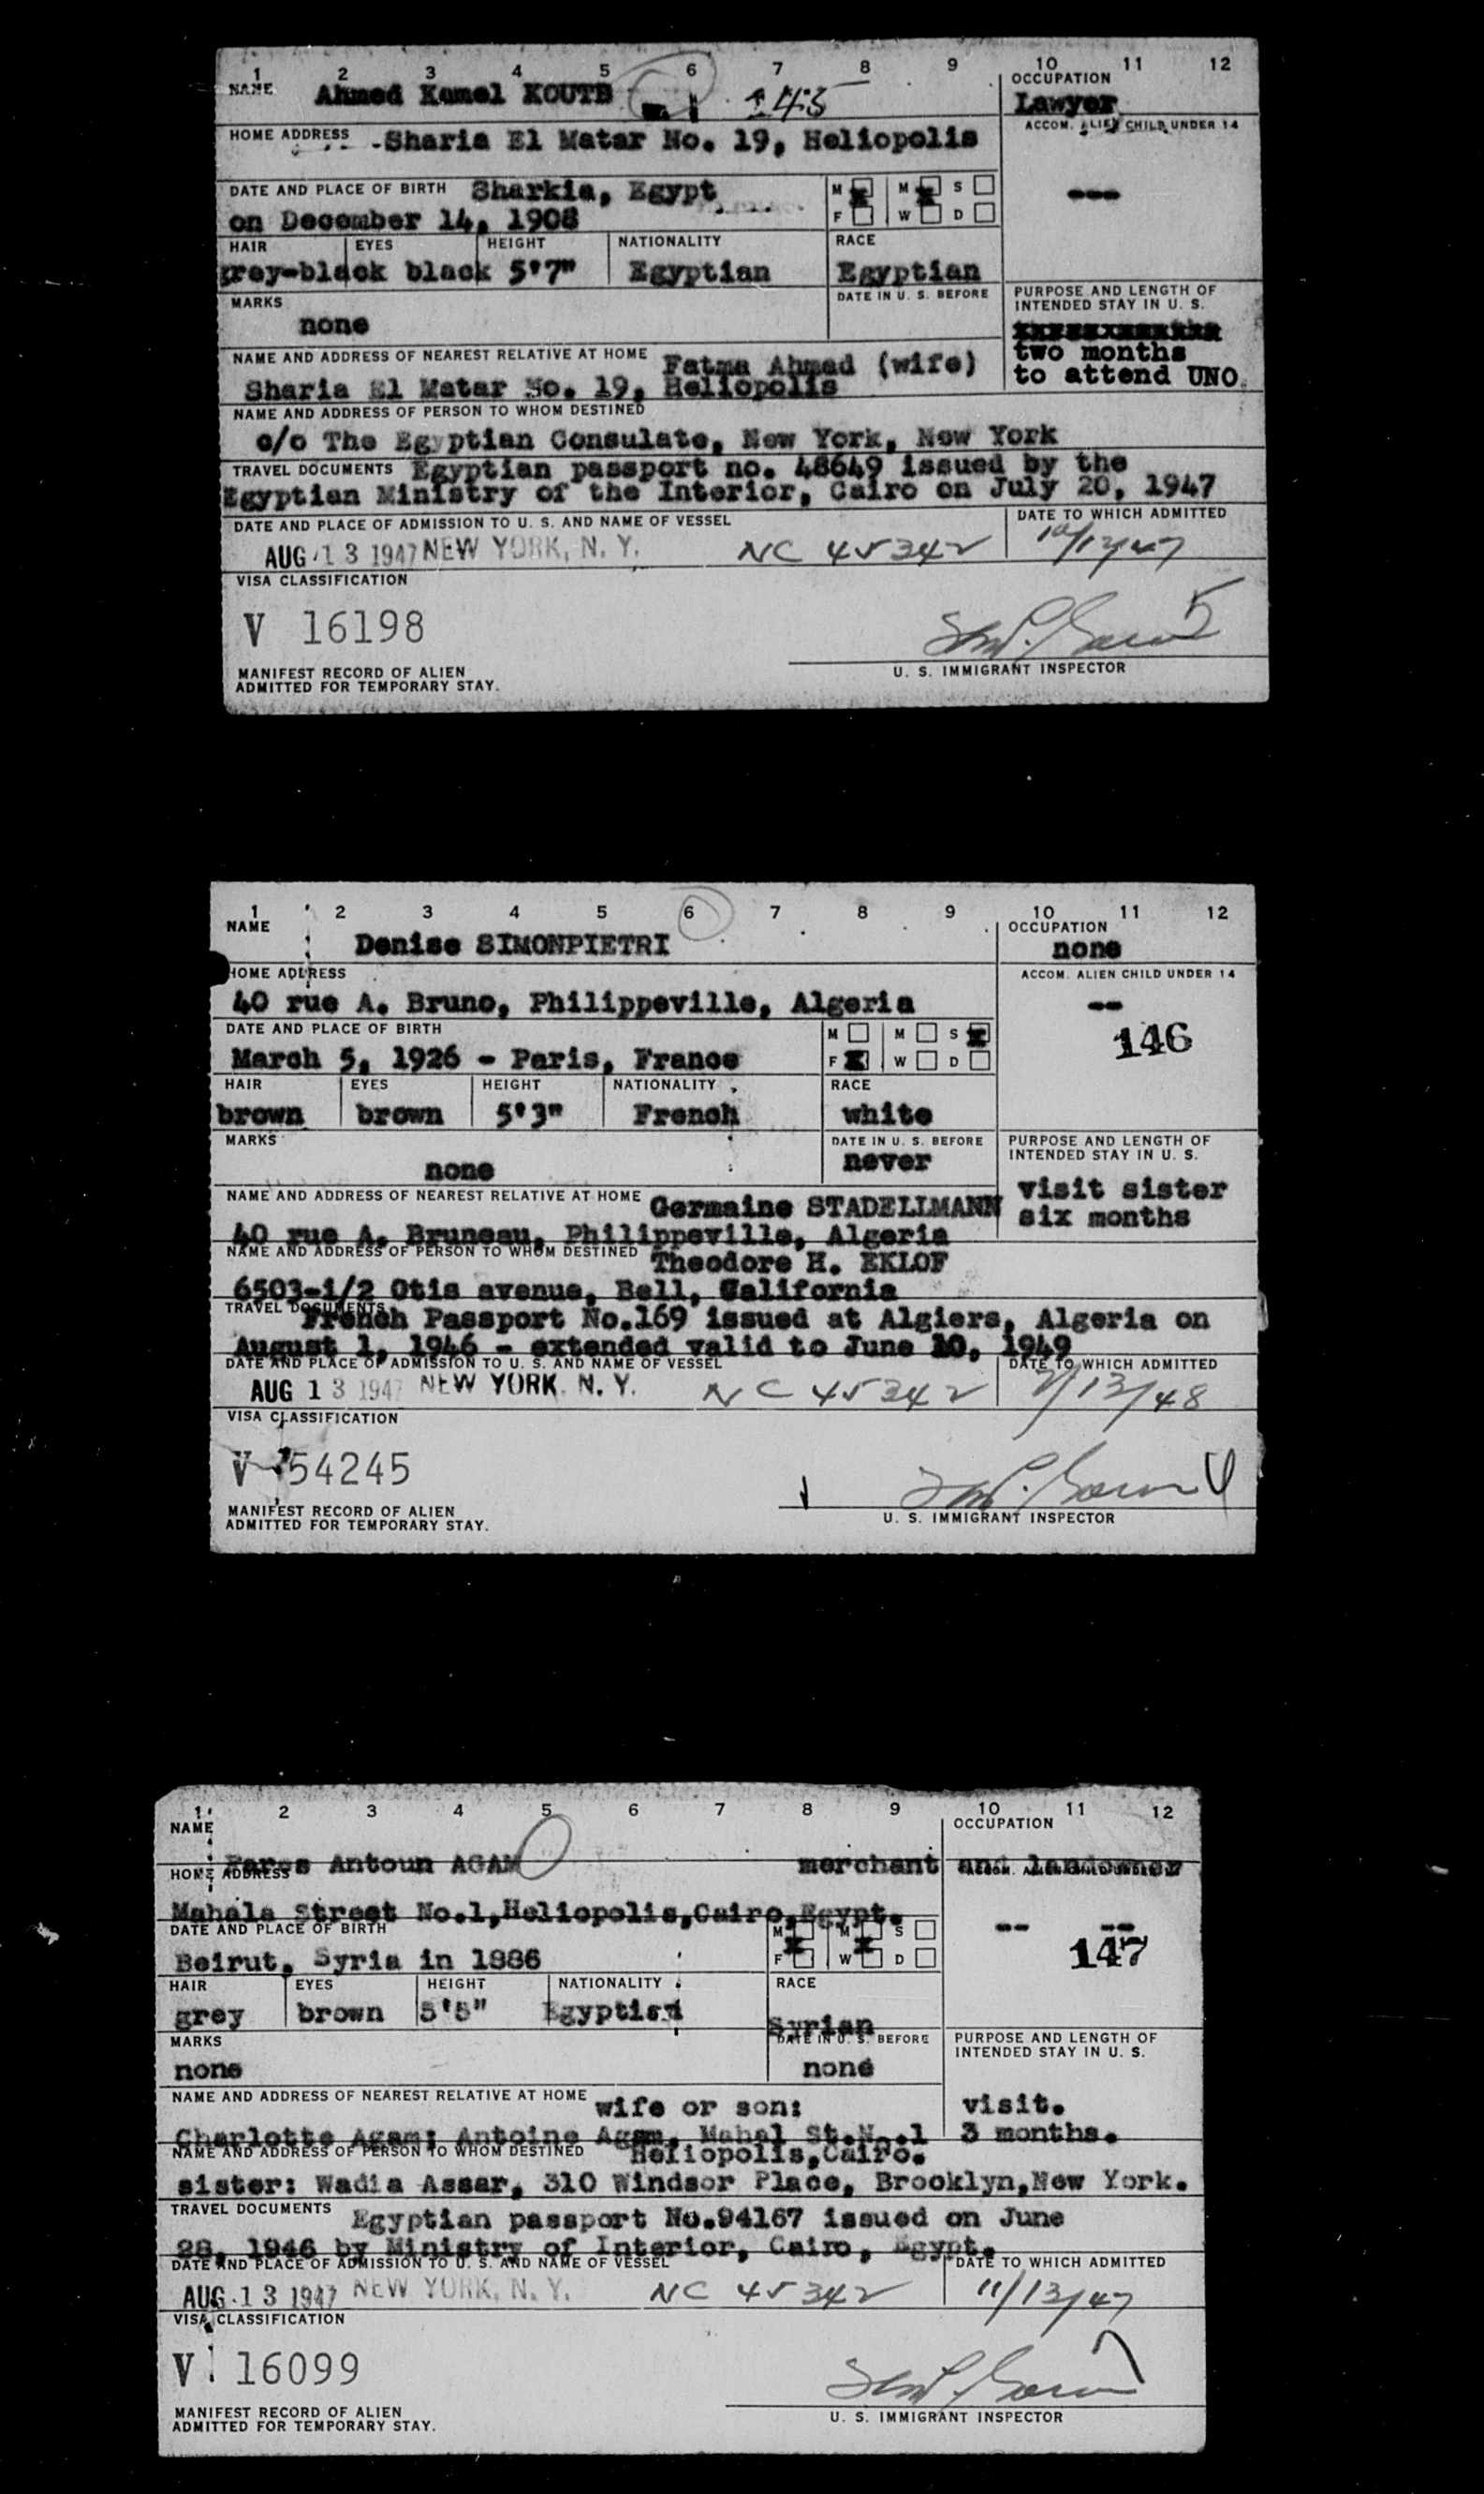 1 2 3 4 5 6 7 8 9 10 11 12
NAME Ahmed Kamel KOUTB 145
OCCUPATION
Lawyer
HOME ADDRESS Sharia El Matar No. 19, Heliopolis
ACCOM. ALIEN CHILD UNDER 14
---
DATE AND PLACE OF BIRTH Sharkia, Egypt
on December 14, 1908
M M S
F W D
HAIR EYES HEIGHT NATIONALITY RACE
grey-black black 5'7" Egyptian Egyptian
MARKS
none
DATE IN U. S. BEFORE
PURPOSE AND LENGTH OF
INTENDED STAY IN U. S.
two months
to attend UNO.
NAME AND ADDRESS OF NEAREST RELATIVE AT HOME Fatma Ahmed (wife)
Sharia El Matar No. 19, Heliopolis
NAME AND ADDRESS OF PERSON TO WHOM DESTINED
c/o The Egyptian Consulate, New York, New York
TRAVEL DOCUMENTS Egyptian passport no. 48649 issued by the
Egyptian Ministry of the Interior, Cairo on July 20, 1947
DATE AND PLACE OF ADMISSION TO U. S. AND NAME OF VESSEL
DATE TO WHICH ADMITTED
AUG 13 1947 NEW YORK, N. Y. NC 45342 10/13/47
VISA CLASSIFICATION
V 16198
5
MANIFEST RECORD OF ALIEN
ADMITTED FOR TEMPORARY STAY.
U. S. IMMIGRANT INSPECTOR
1 2 3 4 5 6 7 8 9 10 11 12
NAME
Denise SIMONPIETRI
OCCUPATION
none
HOME ADDRESS
40 rue A. Bruno, Philippeville, Algeria
ACCOM. ALIEN CHILD UNDER 14
--
146
DATE AND PLACE OF BIRTH
March 5, 1926 - Paris, France
M M S
F W D
HAIR EYES HEIGHT NATIONALITY RACE
brown brown 5'3" French white
MARKS
none
DATE IN U. S. BEFORE
never
PURPOSE AND LENGTH OF
INTENDED STAY IN U. S.
visit sister
six months
NAME AND ADDRESS OF NEAREST RELATIVE AT HOME Germaine STADELLMANN
40 rue A. Bruneau, Philippeville, Algeria
NAME AND ADDRESS OF PERSON TO WHOM DESTINED Theodore H. EKLOF
6503-1/2 Otis avenue, Bell, California
TRAVEL DOCUMENTS French Passport No.169 issued at Algiers, Algeria on
August 1, 1946 - extended valid to June 10, 1949
DATE AND PLACE OF ADMISSION TO U. S. AND NAME OF VESSEL
DATE TO WHICH ADMITTED
AUG 13 1947 NEW YORK, N. Y. NC 45342 2/13/48
VISA CLASSIFICATION
V 54245
MANIFEST RECORD OF ALIEN
ADMITTED FOR TEMPORARY STAY.
U. S. IMMIGRANT INSPECTOR
1 2 3 4 5 6 7 8 9 10 11 12
NAME
OCCUPATION
Fares Antoun AGAM merchant and landowner
HOME ADDRESS
Mahala Street No.1,Heliopolis,Cairo,Egypt.
DATE AND PLACE OF BIRTH
Beirut, Syria in 1886
M M S
F W D
-- --
147
HAIR EYES HEIGHT NATIONALITY RACE
grey brown 5'5" Egyptian Syrian
MARKS
none
DATE IN U. S. BEFORE
none
PURPOSE AND LENGTH OF
INTENDED STAY IN U. S.
visit.
3 months.
NAME AND ADDRESS OF NEAREST RELATIVE AT HOME wife or son:
Charlotte Agam; Antoine Agam, Mahal St.No.1
Heliopolis,Cairo.
NAME AND ADDRESS OF PERSON TO WHOM DESTINED
sister: Wadia Assar, 310 Windsor Place, Brooklyn,New York.
TRAVEL DOCUMENTS Egyptian passport No.94167 issued on June
28, 1946 by Ministry of Interior, Cairo, Egypt.
DATE AND PLACE OF ADMISSION TO U. S. AND NAME OF VESSEL
DATE TO WHICH ADMITTED
AUG 13 1947 NEW YORK, N. Y. NC 45342 11/13/47
VISA CLASSIFICATION
V 16099
MANIFEST RECORD OF ALIEN
ADMITTED FOR TEMPORARY STAY.
U. S. IMMIGRANT INSPECTOR